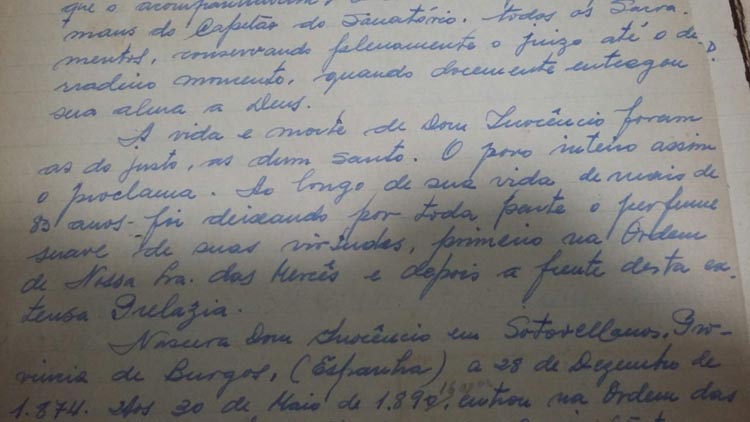 que o acompanhavam,
mãos do Capelão do Sanatório, todos os Sacra-
mentos, conservando plenamente o juizo até o de-
rradeiro momento, quando docemente entregou
sua alma a Deus.
A vida e morte de Dom Inocêncio foram
as do justo, as dum santo. O povo inteiro assim
o proclama. Ao longo de sua vida de mais de
83 anos foi deixando por toda parte o perfume
suave de suas virtudes, primeiro na Ordem
de Nossa Sra. das Mercês e depois a frente desta ex-
tensa Prelazia.
Nascera Dom Inocêncio em Sotovellanos, Pro-
vincia de Burgos, (Espanha) a 28 de Dezembro de
1.874. Aos 30 de Maio de 1.890, entrou na Ordem das